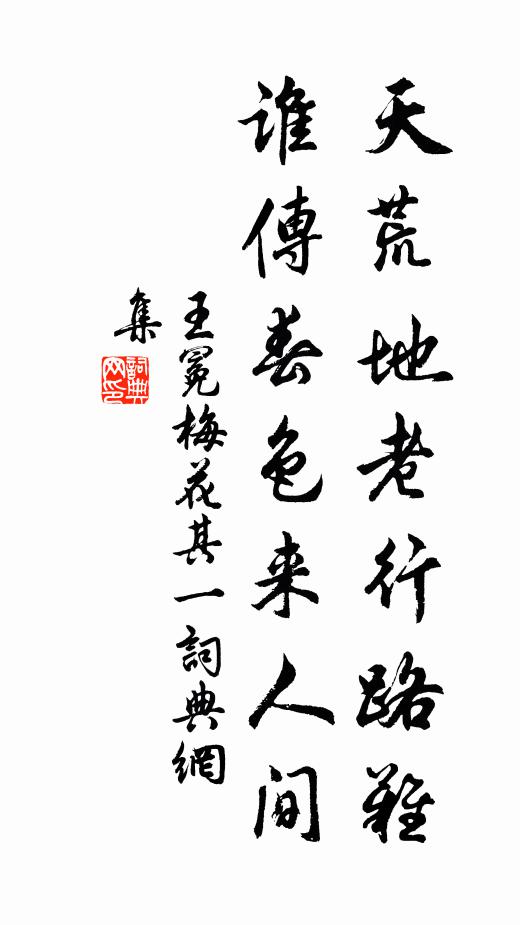 天荒地老行路難
谁傳春色来人间
王冕梅花其一詞典網
集
詞典
网印